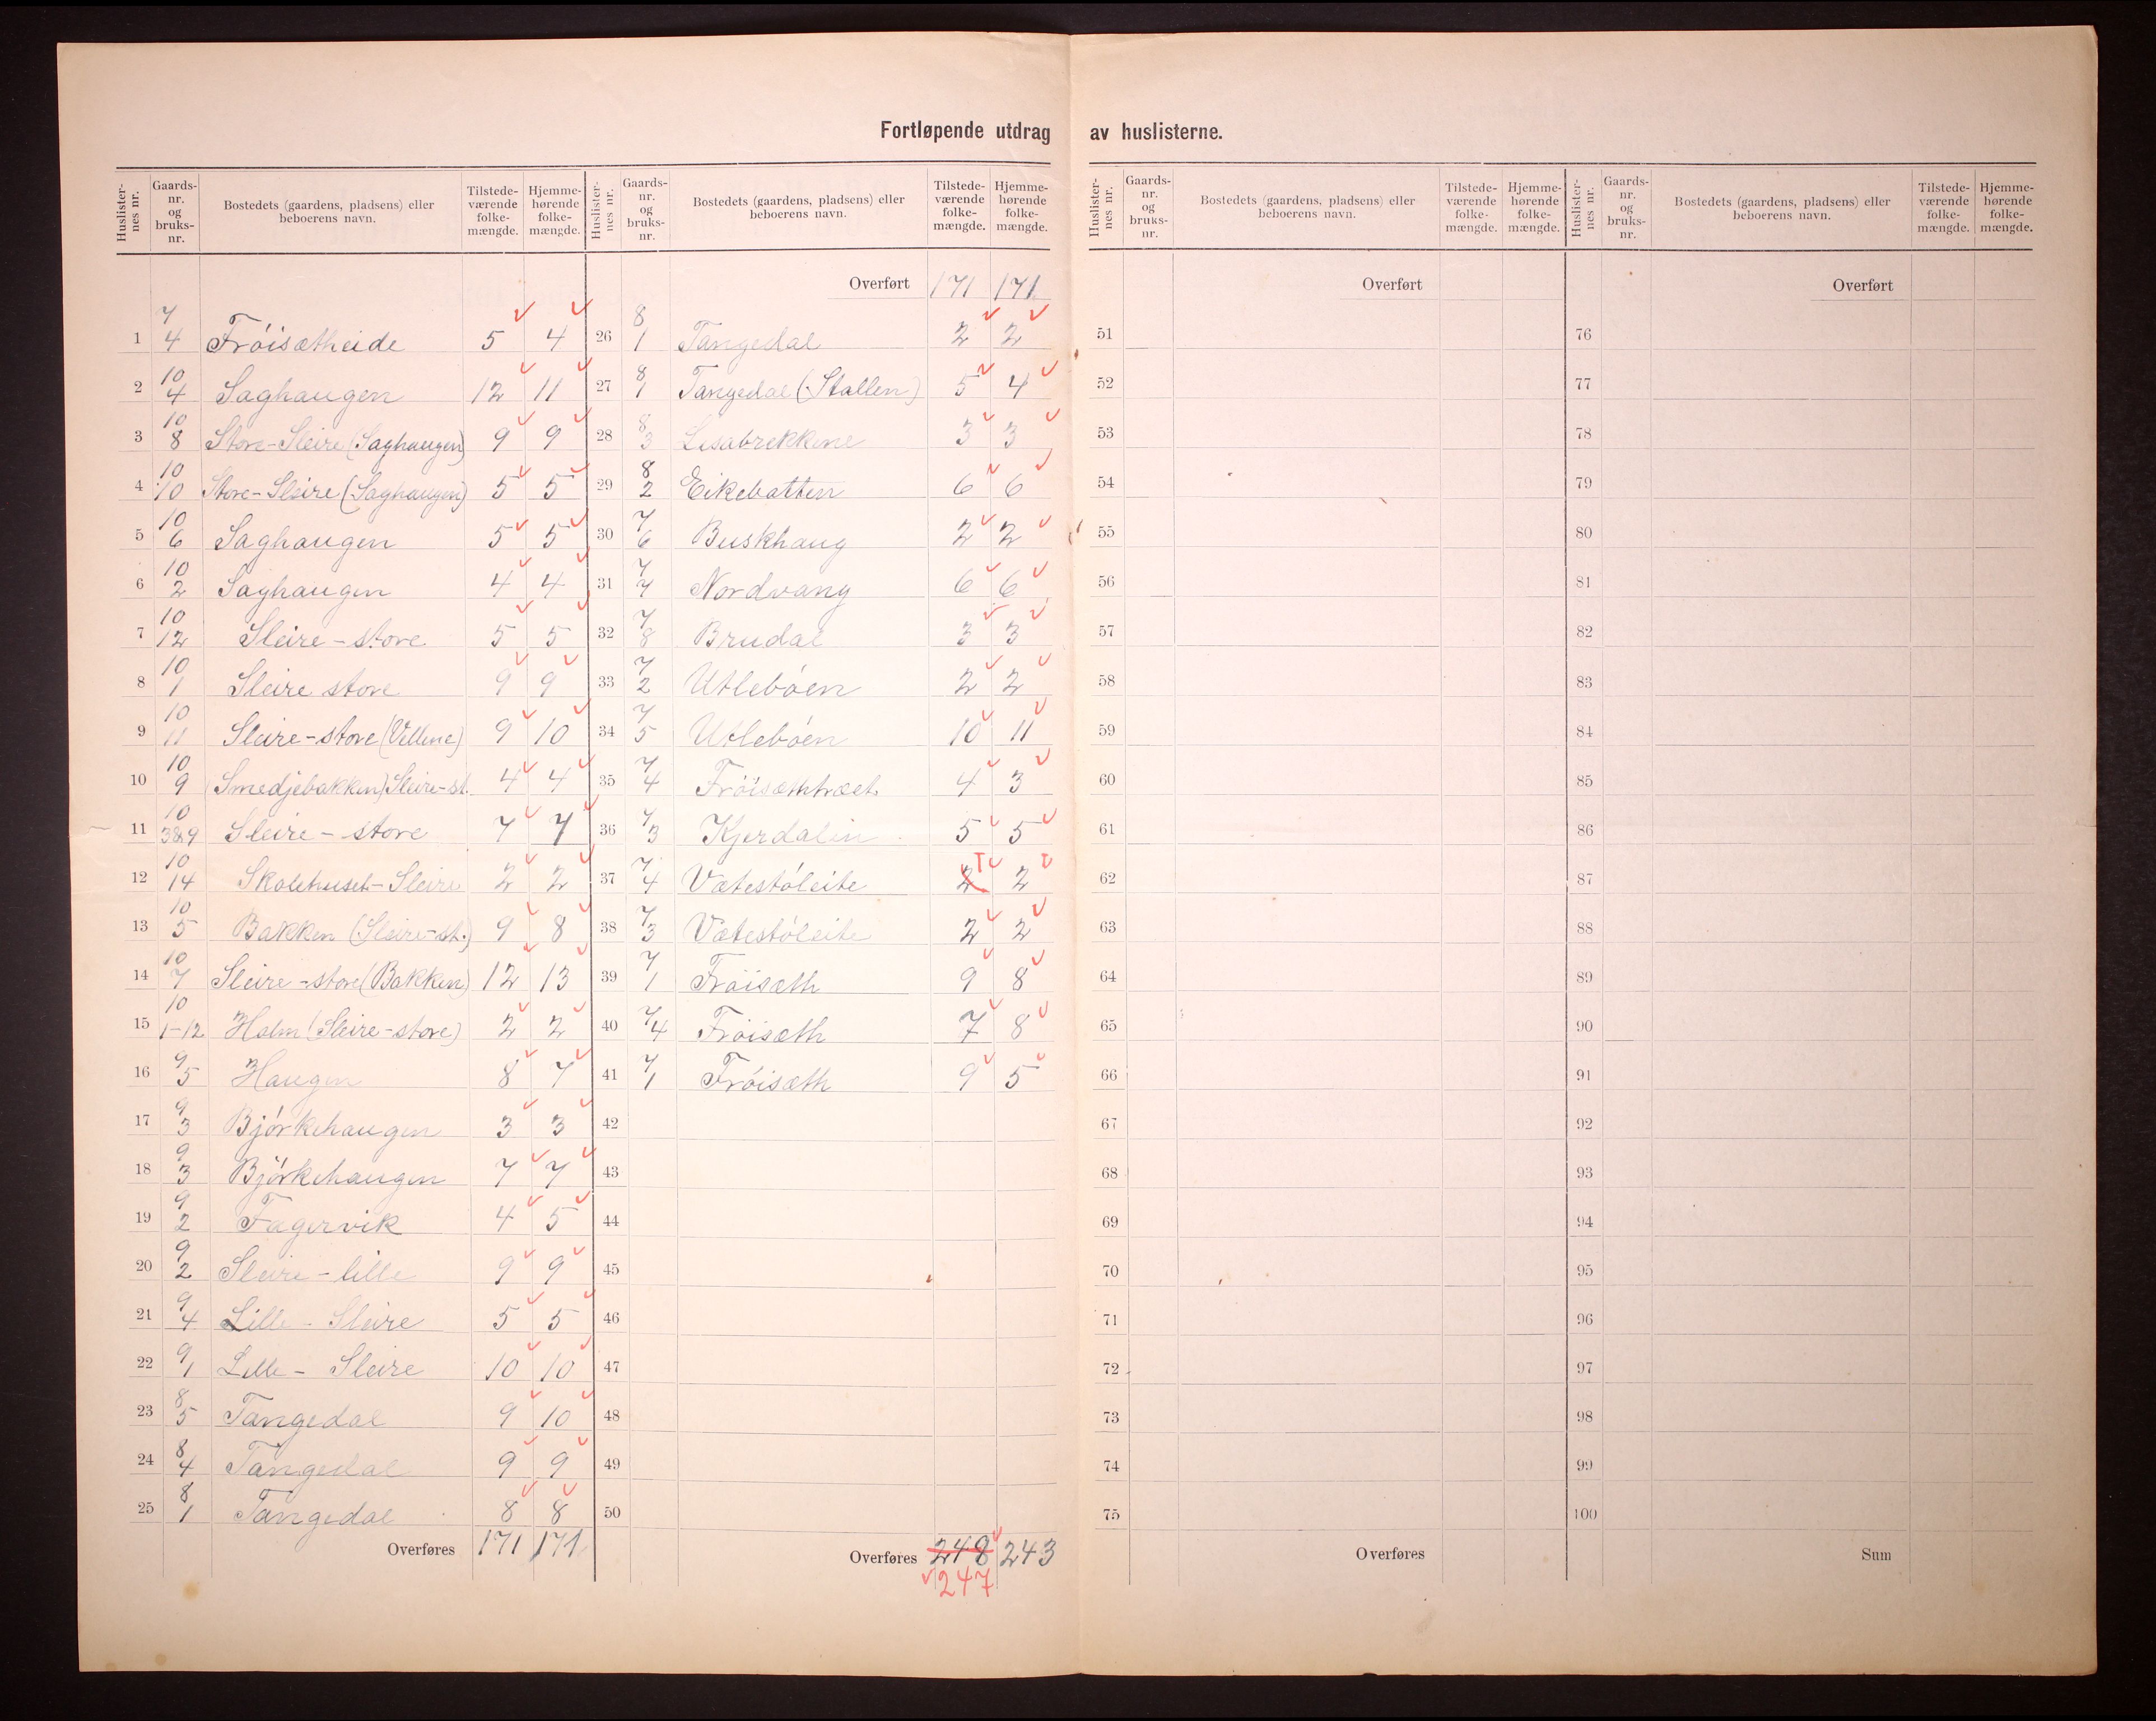 Fortløpende utdrag av huslisterne.
Huslister-nes nr. | Gaards-nr. og bruks-nr. | Bostedets (gaardens, pladsens) eller beboerens navn. | Tilstede-værende folke-mængde. | Hjemme-hørende folke-mængde.
1 7/4 Fróisætheide 5 4
2 10/4 Saghaugen 12 11
3 10/8 Store-Sleire (Saghaugen) 9 9
4 10/10 Store-Sleire (Saghaugen) 5 5
5 10/6 Saghaugen 5 5
6 10/2 Saghaugen 4 4
7 10/12 Sleire-store 5 5
8 10/1 Sleire store 9 9
9 10/11 Sleire-store (Vellene) 9 10
10 10/9 (Smedjebakken) Sleire-st. 4 4
11 10/3&9 Sleire-store 7 7
12 10/14 Skolehuset-Sleire 2 2
13 10/5 Bakken (Sleire-st.) 9 8
14 10/7 Sleire-store (Bakken) 12 13
15 10/1-12 Holm (Sleire-store) 2 2
16 9/5 Haugen 8 7
17 9/3 Bjórkehaugen 3 3
18 9/3 Bjórkehaugen 7 7
19 9/2 Fagervik 4 5
20 9/2 Sleire-lille 9 9
21 9/4 Lille-Sleire 5 5
22 9/1 Lille-Sleire 10 10
23 8/5 Tangedal 9 10
24 8/4 Tangedal 9 9
25 8/1 Tangedal 8 8
Overføres 171 171
Huslister-nes nr. | Gaards-nr. og bruks-nr. | Bostedets (gaardens, pladsens) eller beboerens navn. | Tilstede-værende folke-mængde. | Hjemme-hørende folke-mængde.
Overført 171 171
26 8/1 Tangedal 2 2
27 8/1 Tangedal (Stallen) 5 4
28 8/3 Lisabrekkene 3 3
29 8/2 Eikebotten 6 6
30 7/6 Buskhaug 2 2
31 7/7 Nordvang 6 6
32 7/8 Brudal 3 3
33 7/2 Utlebóen 2 2
34 7/5 Utlebóen 10 11
35 7/4 Fróisæthtræet 4 3
36 7/3 Kjerdalen 5 5
37 7/4 Vætestóleite 2 1 2
38 7/3 Vætestóleite 2 2
39 7/1 Fróisæth 9 8
40 7/4 Fróisæth 7 8
41 7/1 Fróisæth 9 5
42
43
44
45
46
47
48
49
50
Overføres 248 243
247
Huslister-nes nr. | Gaards-nr. og bruks-nr. | Bostedets (gaardens, pladsens) eller beboerens navn. | Tilstede-værende folke-mængde. | Hjemme-hørende folke-mængde.
Overført
51
52
53
54
55
56
57
58
59
60
61
62
63
64
65
66
67
68
69
70
71
72
73
74
75
Overføres
Huslister-nes nr. | Gaards-nr. og bruks-nr. | Bostedets (gaardens, pladsens) eller beboerens navn. | Tilstede-værende folke-mængde. | Hjemme-hørende folke-mængde.
Overført
76
77
78
79
80
81
82
83
84
85
86
87
88
89
90
91
92
93
94
95
96
97
98
99
100
Sum